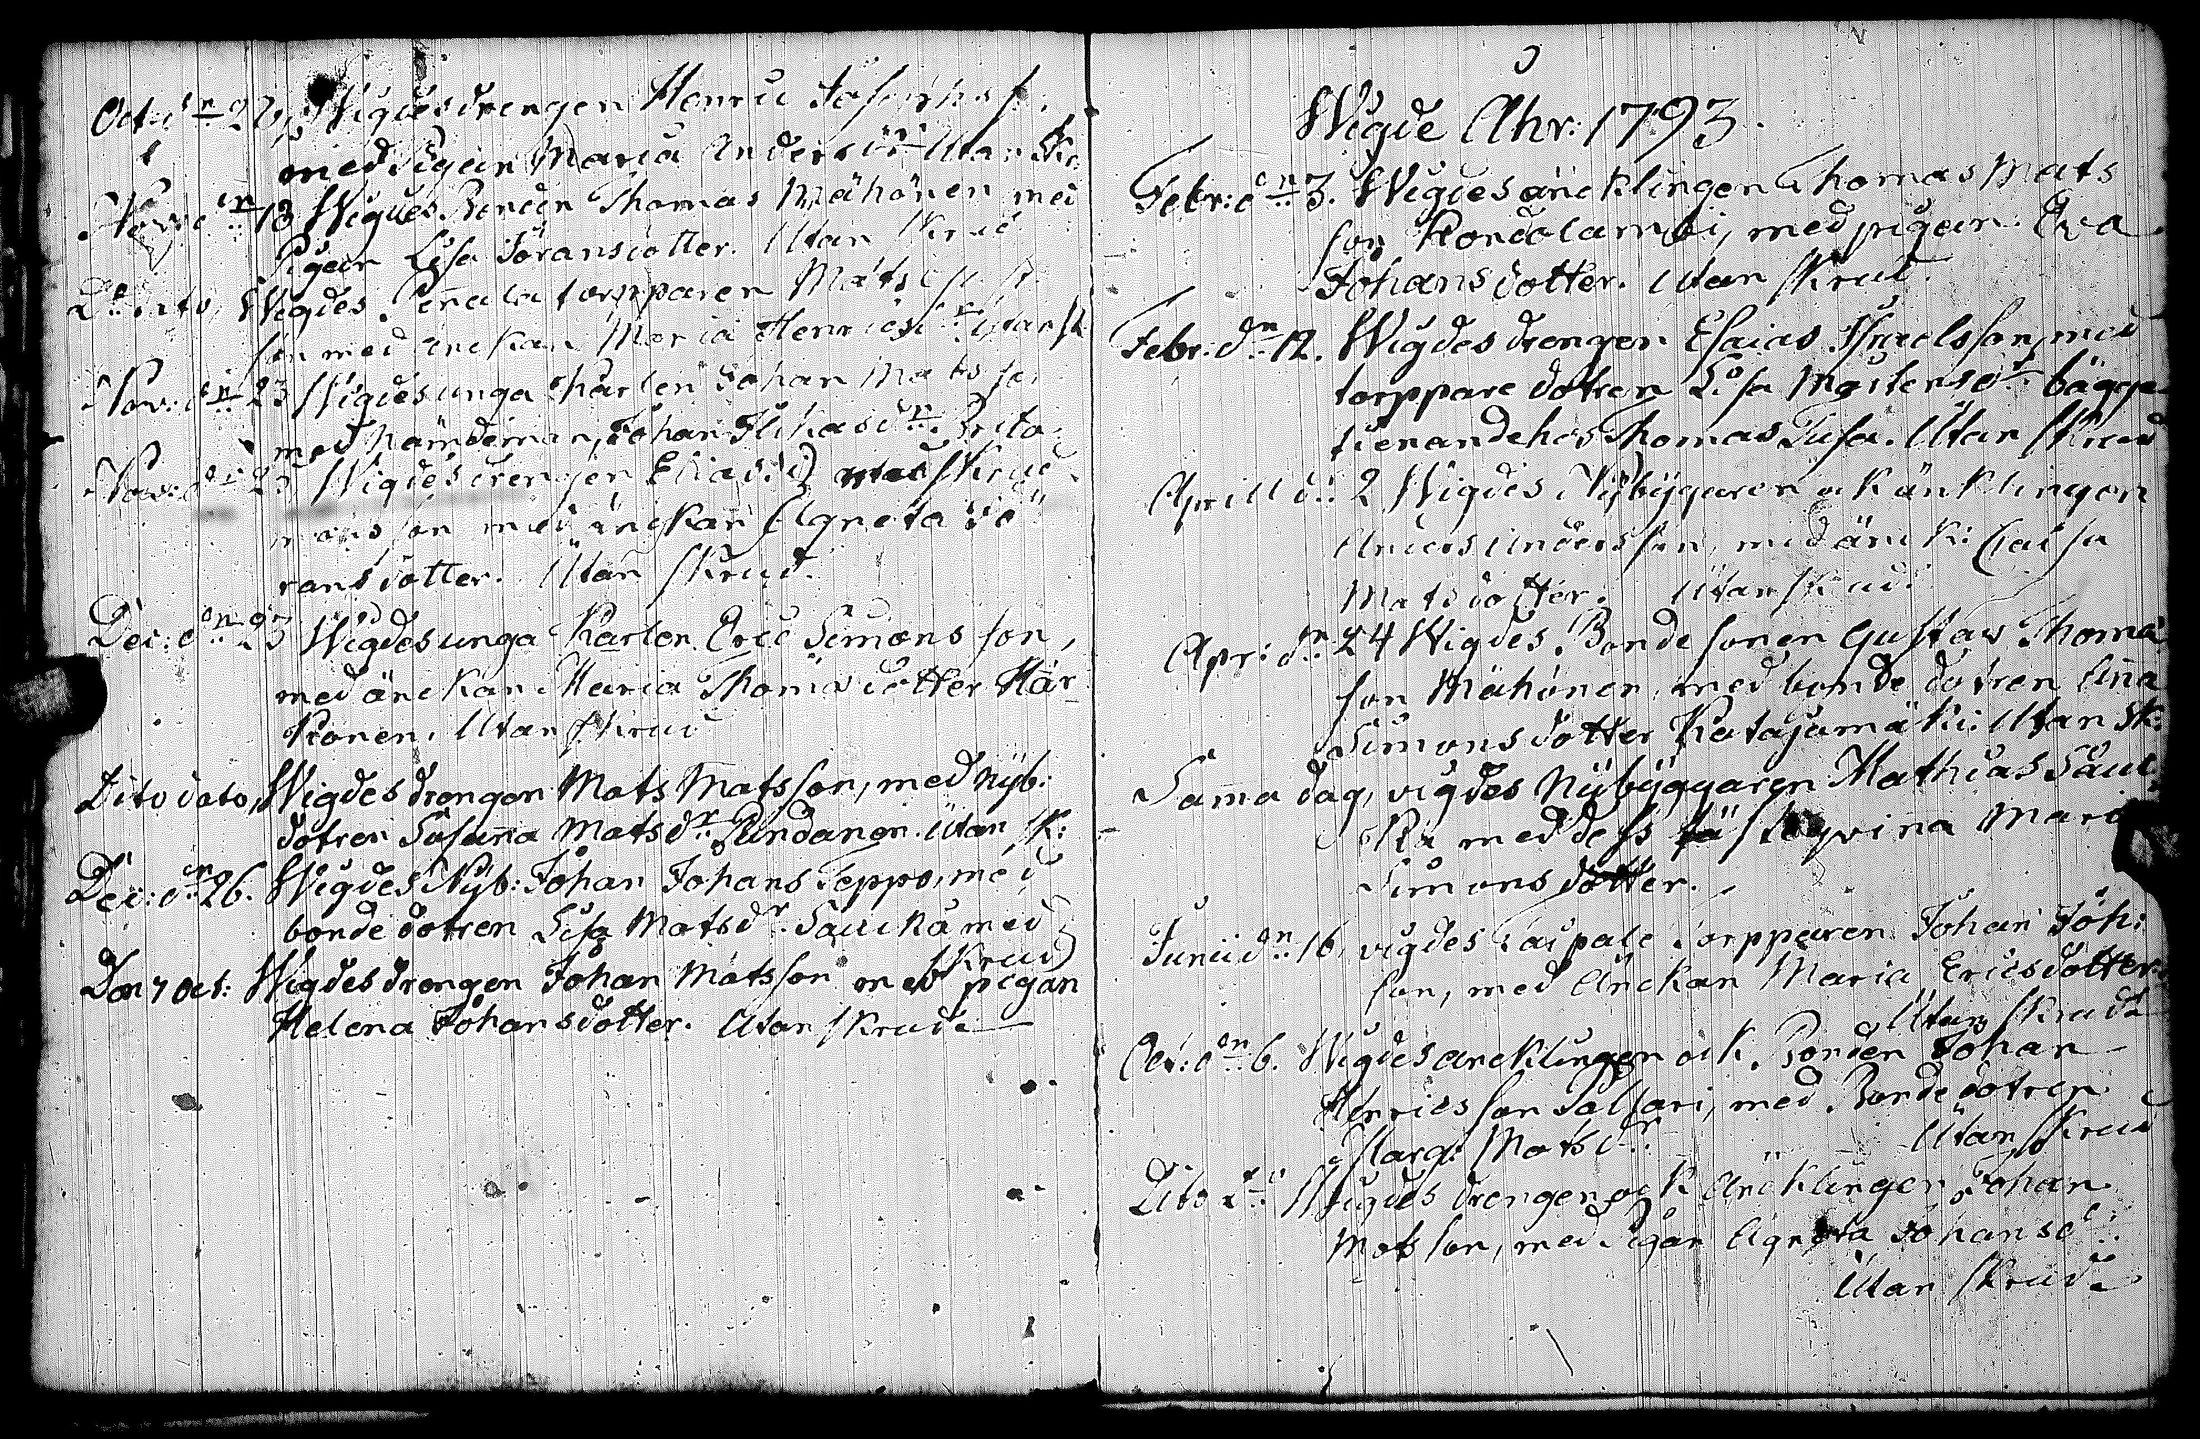 Oct: dn 20, Wigdes drengen Henric
med Pigan Maria Andersdr Utan Sk:
Nov: dn 13 Wigdes Bonden Thomas Mähönen med
Pigan Lisa Joransdotter. Utan Skrud
Dn dito, Wigdes torpparen Mats
son med enckan Maria Henricsdr Utan Sk
Nov: dn 23 Wigdes unga Karlen Johan Mats son
med nämdeman, Johan dn Brita
Nov: dn 25 Wigdes drengen Elias Skrud
son med änckan Agneta Jö
ransdotter. Utan Skrud.
Dec: dn 23 Wigdes unga Karlen Eric Simons son,
med änckan Maria Thomædotter Kär
konen. Utan Skrud
Dito dato, Wigdes drengen Mats Matsson, med Nÿb:
dotren Susanna Matsdr Pundanen. Utan Sk:
Dec: dn 26. Wigdes Nÿb: Johan Johans Teppo, med
bonde dotren Lisa Matsdr Sauika med
Skrud
Den 7 Oct: Wigdes drengen Johan Matsson med pigan
Helena Johansdotter. Utan Skrud.
Wigde Åhr: 1793.
Febr: dn 3. Wigdes äncklingen Thomas Mats
son Kondolambi, med pigan Eva
Johansdotter. Utan Skrud.
Febr: dn 12. Wigdes drengen Esaias Israelsson, med
torppare dotren Lisa Mårtensdr bägge
tienande hos Thomas Tusa. Utan Skrud
Aprill d: 2 Wigdes Nÿbÿgaren ock änklingen
Anders Andersson, med änck: Caisa
Matsdotter. Utan Skrud.
Apr: dn 24 Wigdes Bonde sonen Gustav Thomæ
son Mähönen, med bonde dotren Anna
Simons dotter Katajamäki. Utan Sk:
Samma dag, vigdes Nÿbÿggaren Mathias Saui
ka med dess fästeqvinna Maria
Simons dotter.
Junii dn 16, vigdes Taipale Torpparen Johan Joh:
son, med Enckan Maria Ericsdotter.
Utan Skrud
Oct: dn 6. Wigdes äncklingen ock Bonden Johan
Henricsson Salsari, med Bonde dotren
Marg: Matsdr. Utan Skrud
Dito dn Wigdes drengen ock Äncklingen Johan
Matsson, med Pigan Agneta Johansd:
Utan Skrud.